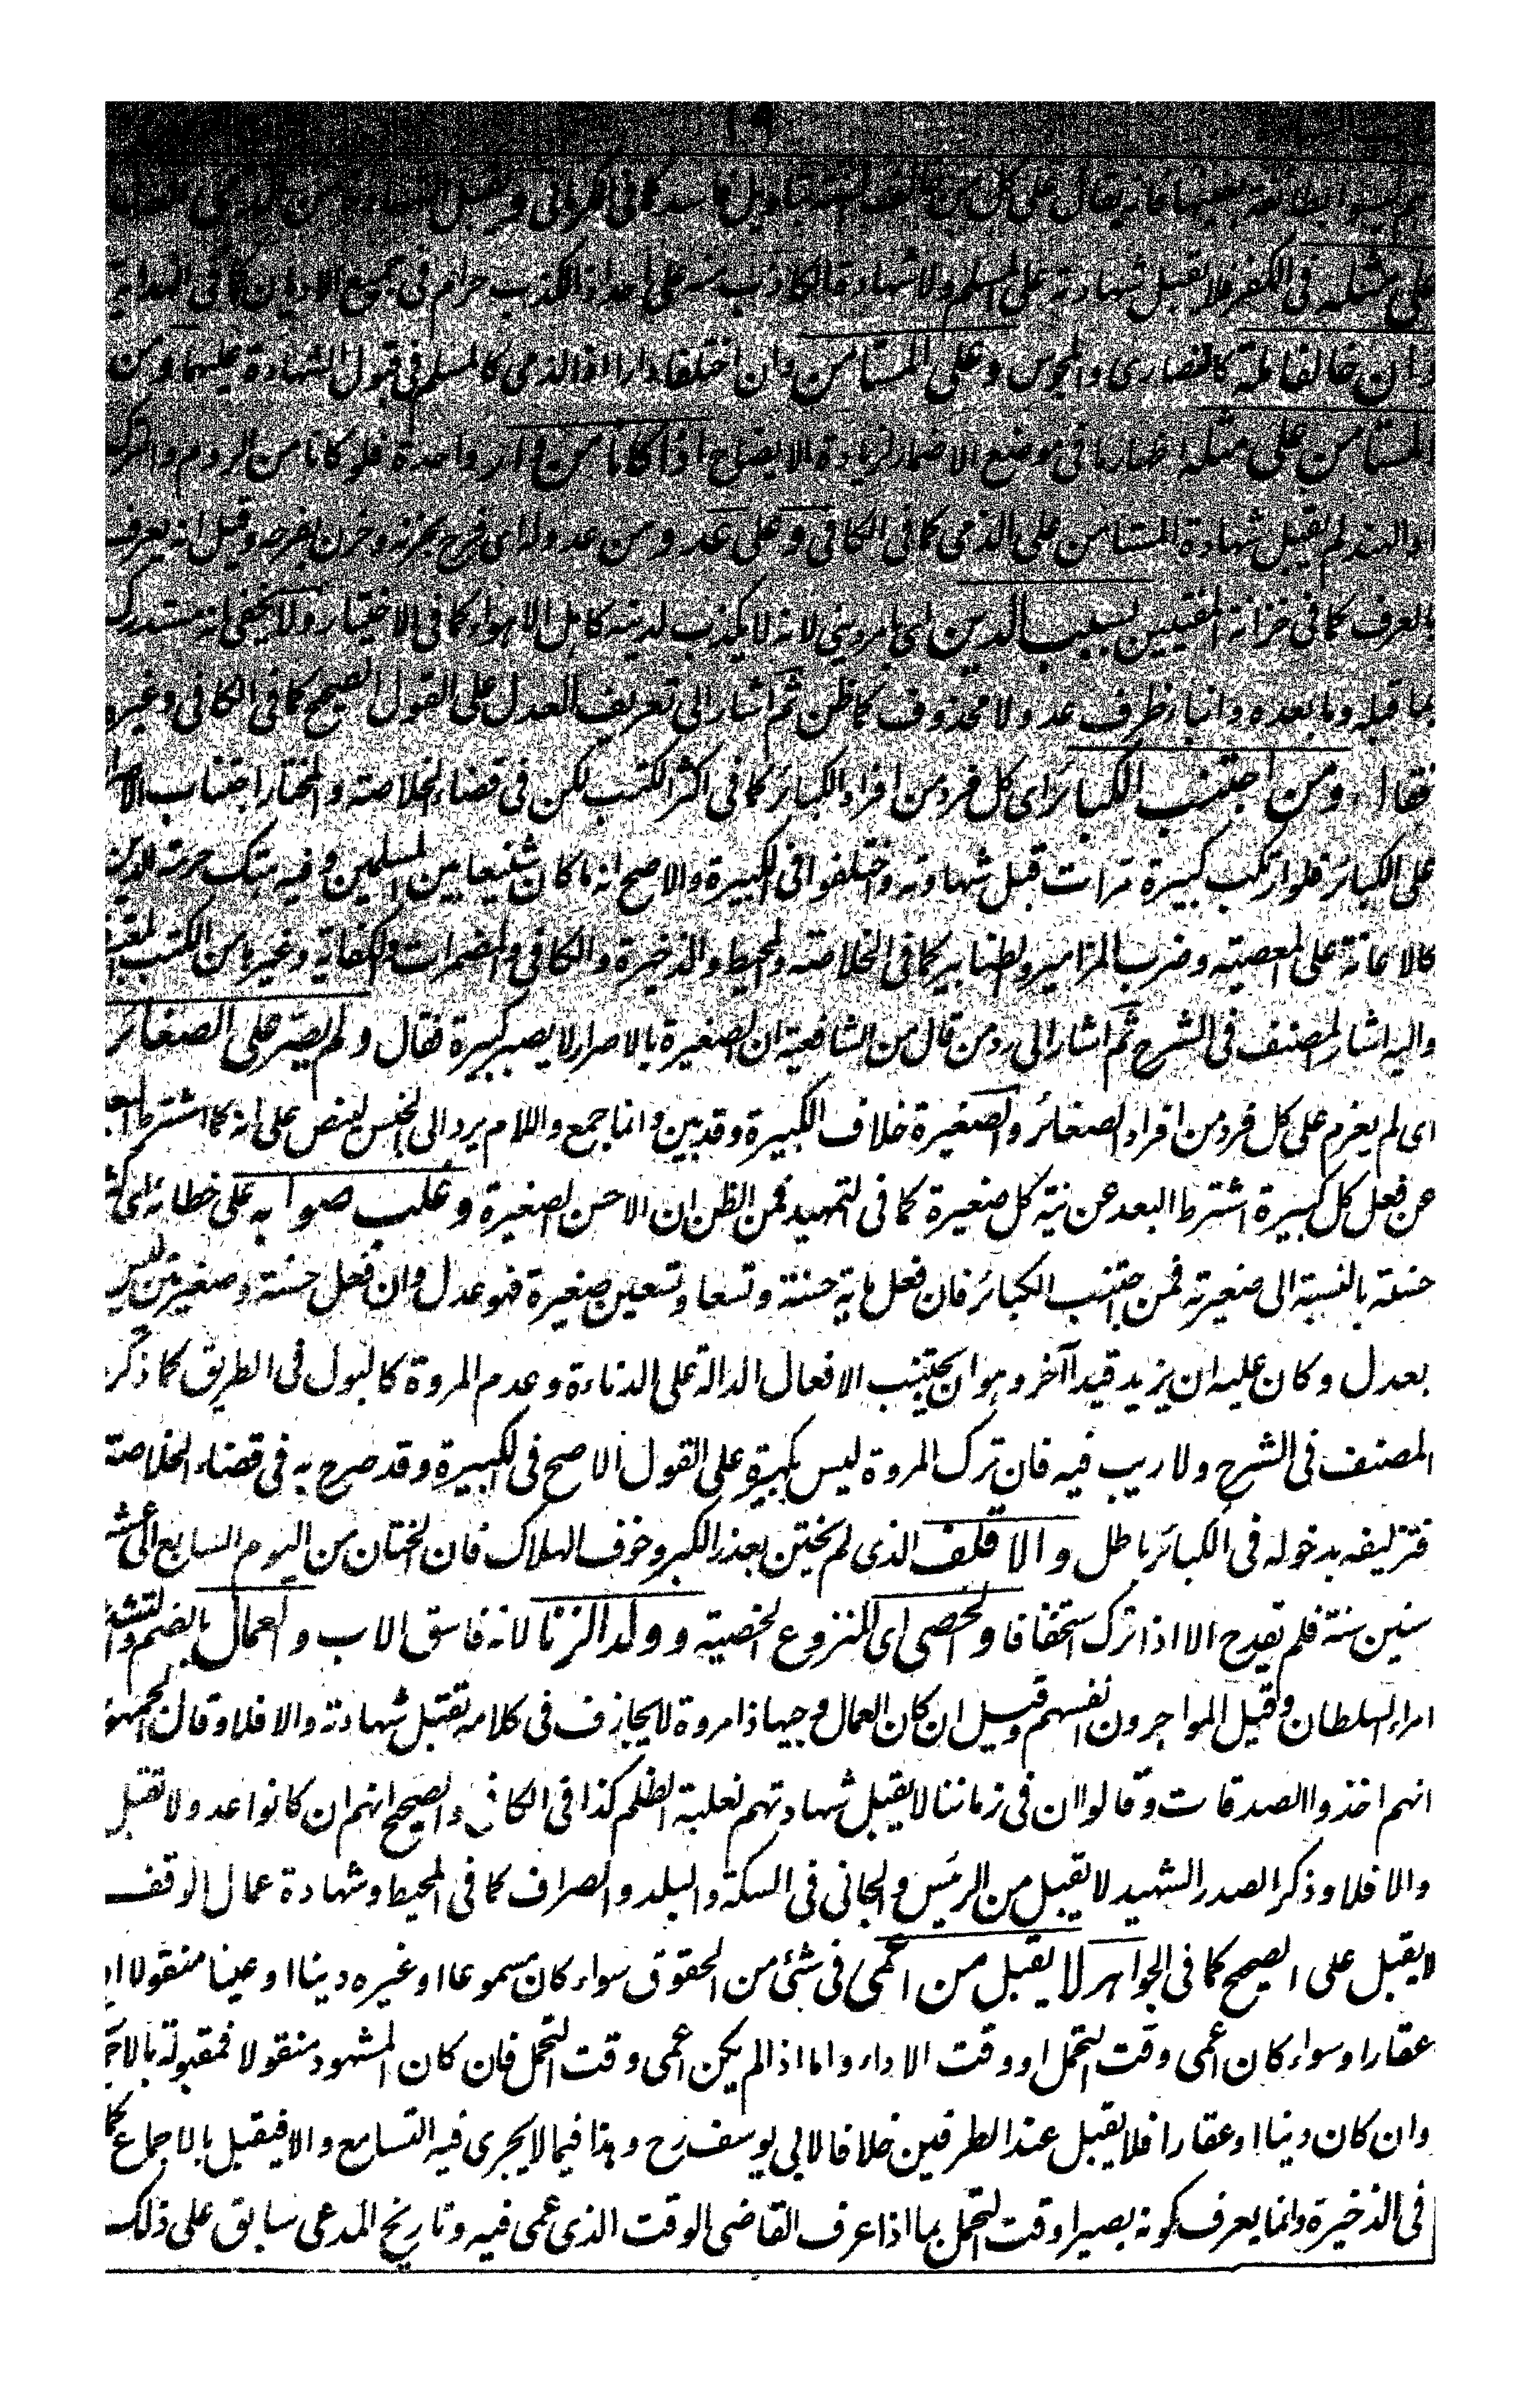 على مثله فى الكفر فلا تقبل شهادته على المسلم ولا شهادة الكاذب منه على احد اذ الكذب حرام فى جميع الاديان كما فى الهداية
وان خالفا ملة كالنصارى والمجوس وعلى المستامن وان اختلفا دارا اذ الذمى كالمسلم فى قبول الشهادة عليهما ومن
المستامن على مثله اظهارها فى موضع الاضمار لزيادة الايضاح اذا كانا من دار واحدة فلو كانا من الروم والترك
او الهند لم تقبل شهادة المستامن على الذمى كما فى الكافى وعلى عدو ومن عدو اى فرح بحزنه وحزن بفرحه وقيل انه يعرف
بالعرف كما فى خزانة المفتيين بسبب الدين اى امر دينى لانه لا يكذب لدينه كاهل الاهواء كما فى الاختيار ولا يخفى انه مستدرك
بما قبله وما بعده وانما ظرف عدو لا محذوف كما ظن ثم اشار الى تعريف العدل على القول الصحيح كما فى الكافى وغيره
فقال ومن اجتنب الكبائر اى كل فرد من افراد الكبائر كما فى اكثر الكتب لكن فى قضاء الخلاصة والمختار اجتناب الاصرار
على الكبائر فلو ارتكب كبيرة مرة تقبل شهادته واختلفوا فى الكبيرة والاصح انه ما كان شنيعا بين المسلمين وفيه هتك حرمة الدين
كالاعانة على المعصية وضرب المزامير والطنابير كما فى الخلاصة والمحيط والذخيرة والكافى والمضمرات والكفاية وغيره من الكتب
واليه اشار المصنف فى الشرح ثم اشار الى رد من قال من الشافعية ان الصغيرة بالاصرار لا يصير كبيرة فقال ولم يصر على الصغائر
اى لم يعزم على كل فرد من افراد الصغائر والصغيرة خلاف الكبيرة وقد بين وانما جمع واللام يرد الى الجنس لينص على انه كما اشترط البعد
عن فعل كل كبيرة اشترط البعد عن نية كل صغيرة كما فى التمهيد فمن الظن ان الاحسن الصغيرة وغلب صوابه على خطائه اى
حسنته بالنسبة الى صغيرته فمن اجتنب الكبائر فان فعل مائة حسنة وتسعا وتسعين صغيرة فهو عدل وان فعل حسنة وصغيرتين ليس
بعدل وكان عليه ان يزيد قيدا آخر وهو ان يجتنب الافعال الدالة على الدناءة وعدم المروة كالبول فى الطريق كما ذكر
المصنف فى الشرح ولا ريب فيه فان ترك المروة ليس بكبيرة على القول الاصح فى الكبيرة وقد صرح به فى قضاء الخلاصة
فتزليفه بدخوله فى الكبائر باطل والاقلف الذى لم يختن بعذر الكبر وخوف الهلاك فان الختان من اليوم السابع الى عشر
سنين سنة فلم تقدح الا اذا ترك استخفافا والخصى اى المنزوع الخصية وولد الزنا لانه فاسق الاب والعمال بالضم والتشديد
امراء السلطان وقيل المواجرون انفسهم وقيل ان كان العمال وجيها ذا مروة لا يجازف فى كلامه تقبل شهادته والا فلا وقال الجمهور
انهم اخذوا الصدقات وقالوا ان فى زماننا لا يقبل شهادتهم لغلبة الظلم كذا فى الكافى والصحيح انهم ان كانوا عدولا تقبل
والا فلا وذكر الصدر الشهيد لا يقبل من الرئيس والجانى فى السكة والبلد والصراف كما فى المحيط وشهادة عمال الوقف
لا يقبل على الصحيح كما فى الجواهر لا يقبل من اعمى فى شئ من الحقوق سواء كان مسموعا او غيره دينا او عينا منقولا او
عقارا وسواء كان اعمى وقت التحمل او وقت الاداء واما اذا لم يكن اعمى وقت التحمل فان كان المشهود منقولا فمقبولة بالاجماع
وان كان دينا او عقارا فلا يقبل عند الطرفين خلافا لابى يوسف رح وهذا فيما لا يجرى فيه التسامع والا فيقبل بالاجماع كما
فى الذخيرة وانما يعرف كونه بصيرا وقت التحمل بما اذا عرف القاضى الوقت الذى عمى فيه وتاريخ المدعى سابق على ذلك